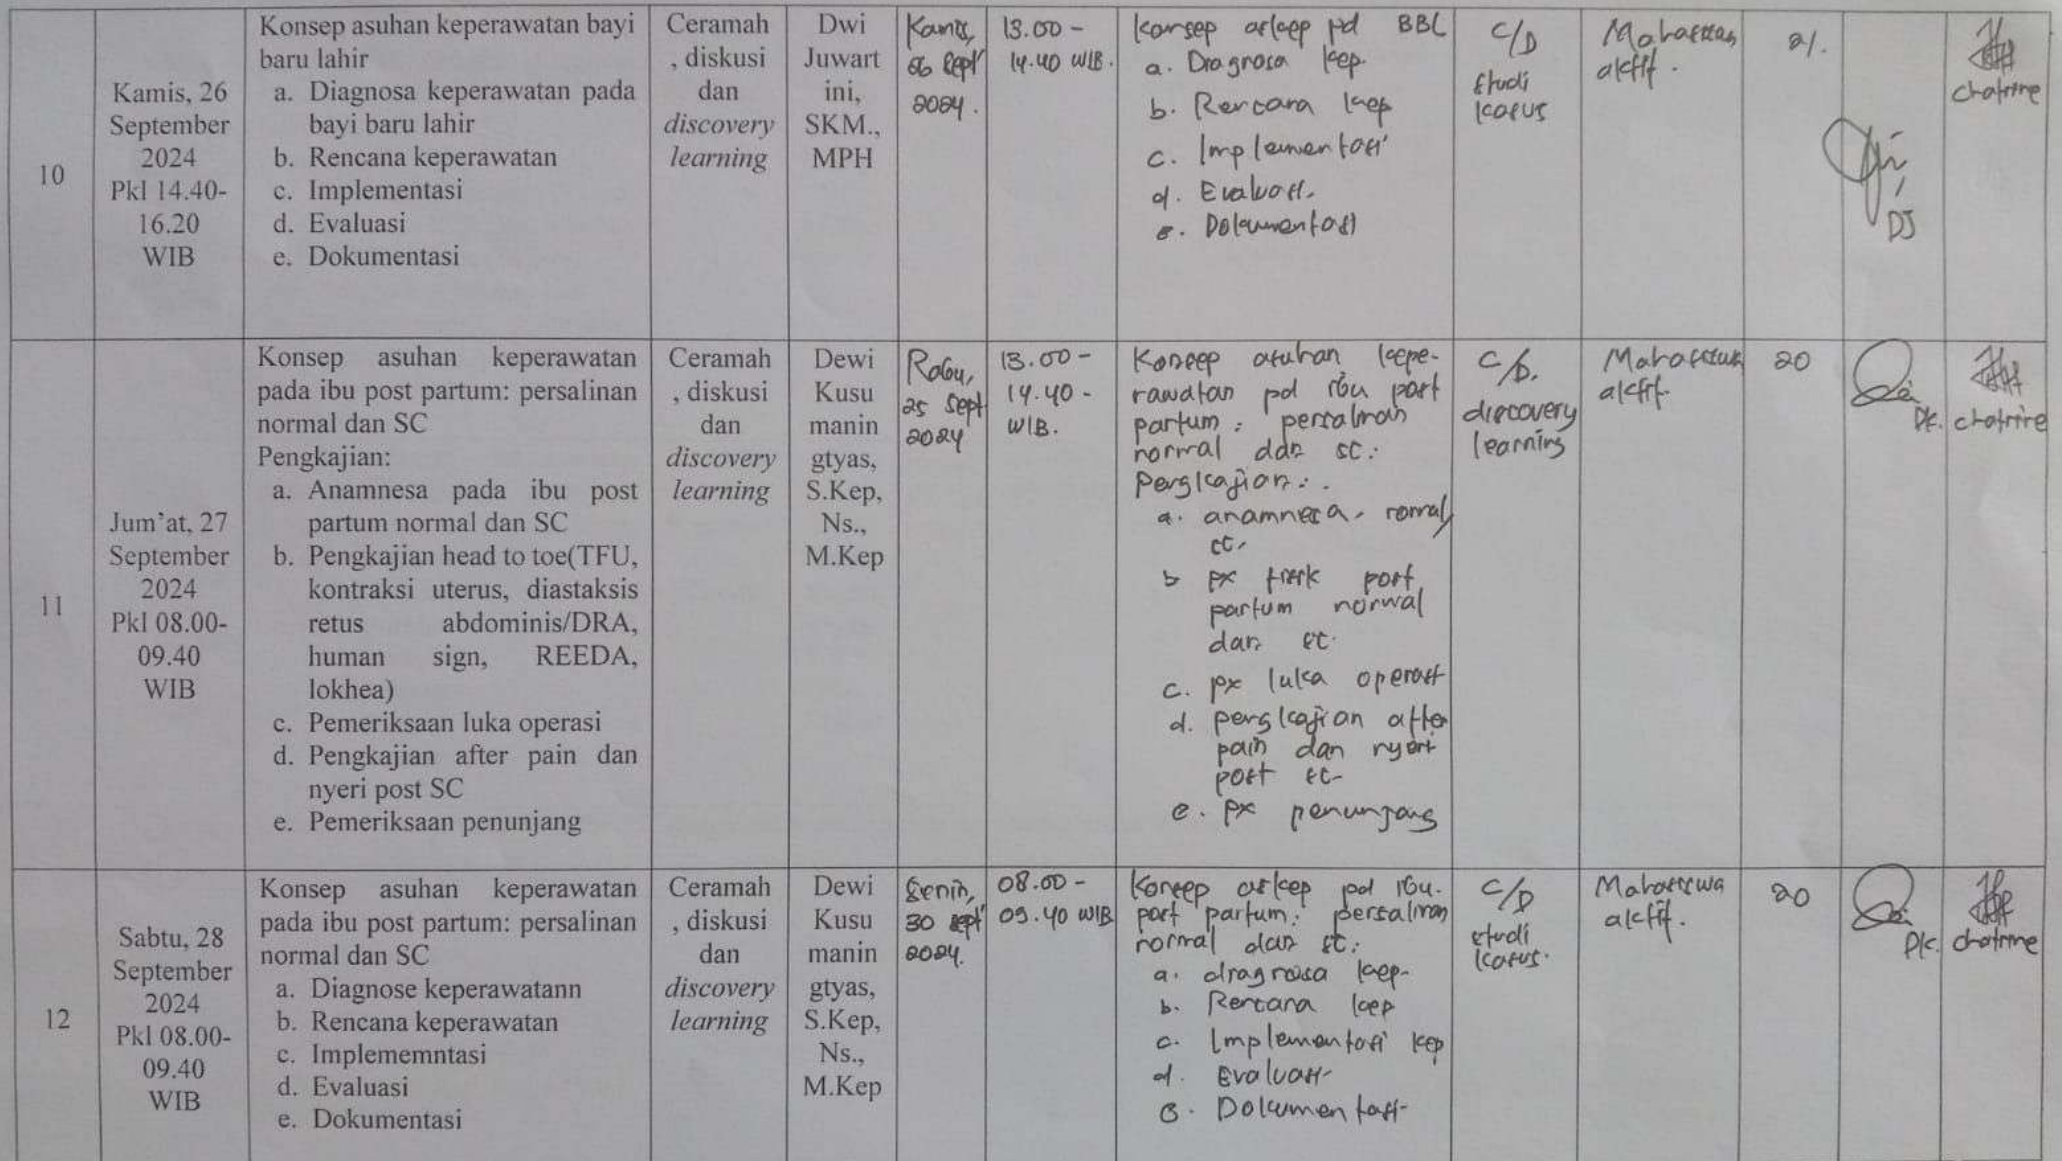 10
Kamis, 26
September
2024
Pkl 14.40-
16.20
WIB
Konsep asuhan keperawatan bayi
baru lahir
a. Diagnosa keperawatan pada
bayi baru lahir
b. Rencana keperawatan
c. Implementasi
d. Evaluasi
e. Dokumentasi
Ceramah
, diskusi
dan
discovery
learning
Dwi
Juwart
ini,
SKM.,
MPH
Kamis,
Sept
2024.
13.00 -
14.40 WIB.
Konsep askep pd BBL
a. Diagnosa kep.
b. Rencana kep
c. Implementasi
d. Evaluasi.
e. Dokumentasi
C/D
studi
kasus
Mahasiswa
aktif.
21.
DJ
chatrine
11
Jum'at, 27
September
2024
Pkl 08.00-
09.40
WIB
Konsep asuhan keperawatan
pada ibu post partum: persalinan
normal dan SC
Pengkajian:
a. Anamnesa pada ibu post
partum normal dan SC
b. Pengkajian head to toe(TFU,
kontraksi uterus, diastaksis
retus abdominis/DRA,
human sign, REEDA,
lokhea)
c. Pemeriksaan luka operasi
d. Pengkajian after pain dan
nyeri post SC
e. Pemeriksaan penunjang
Ceramah
, diskusi
dan
discovery
learning
Dewi
Kusu
manin
gtyas,
S.Kep,
Ns.,
M.Kep
Rabu,
25 Sept
2024
13.00 -
14.40 -
WIB.
Konsep asuhan kepe-
rawatan pd ibu post
partum : persalinan
normal dan sc :
Pengkajian : .
a. anamnesa, normal,
sc.
b px fisik post
partum normal
dan sc.
c. px luka operasi
d. pengkajian after
pain dan nyeri
post sc-
e. px penunjang
C/D.
discovery
learning
Mahasiswa
aktif.
20
DK.
chatrine
12
Sabtu, 28
September
2024
Pkl 08.00-
09.40
WIB
Konsep asuhan keperawatan
pada ibu post partum: persalinan
normal dan SC
a. Diagnose keperawatann
b. Rencana keperawatan
c. Implememntasi
d. Evaluasi
e. Dokumentasi
Ceramah
, diskusi
dan
discovery
learning
Dewi
Kusu
manin
gtyas,
S.Kep,
Ns.,
M.Kep
Senin,
30 sept
2024.
08.00 -
09.40 WIB
Konsep askep pd ibu.
post partum : persalinan
normal dan sc :
a. diagnosa kep-
b. Rencana kep
c. Implementasi kep
d. Evaluasi
e. Dokumentasi-
C/D
studi
kasus.
Mahasiswa
aktif.
20
DK.
chatrine